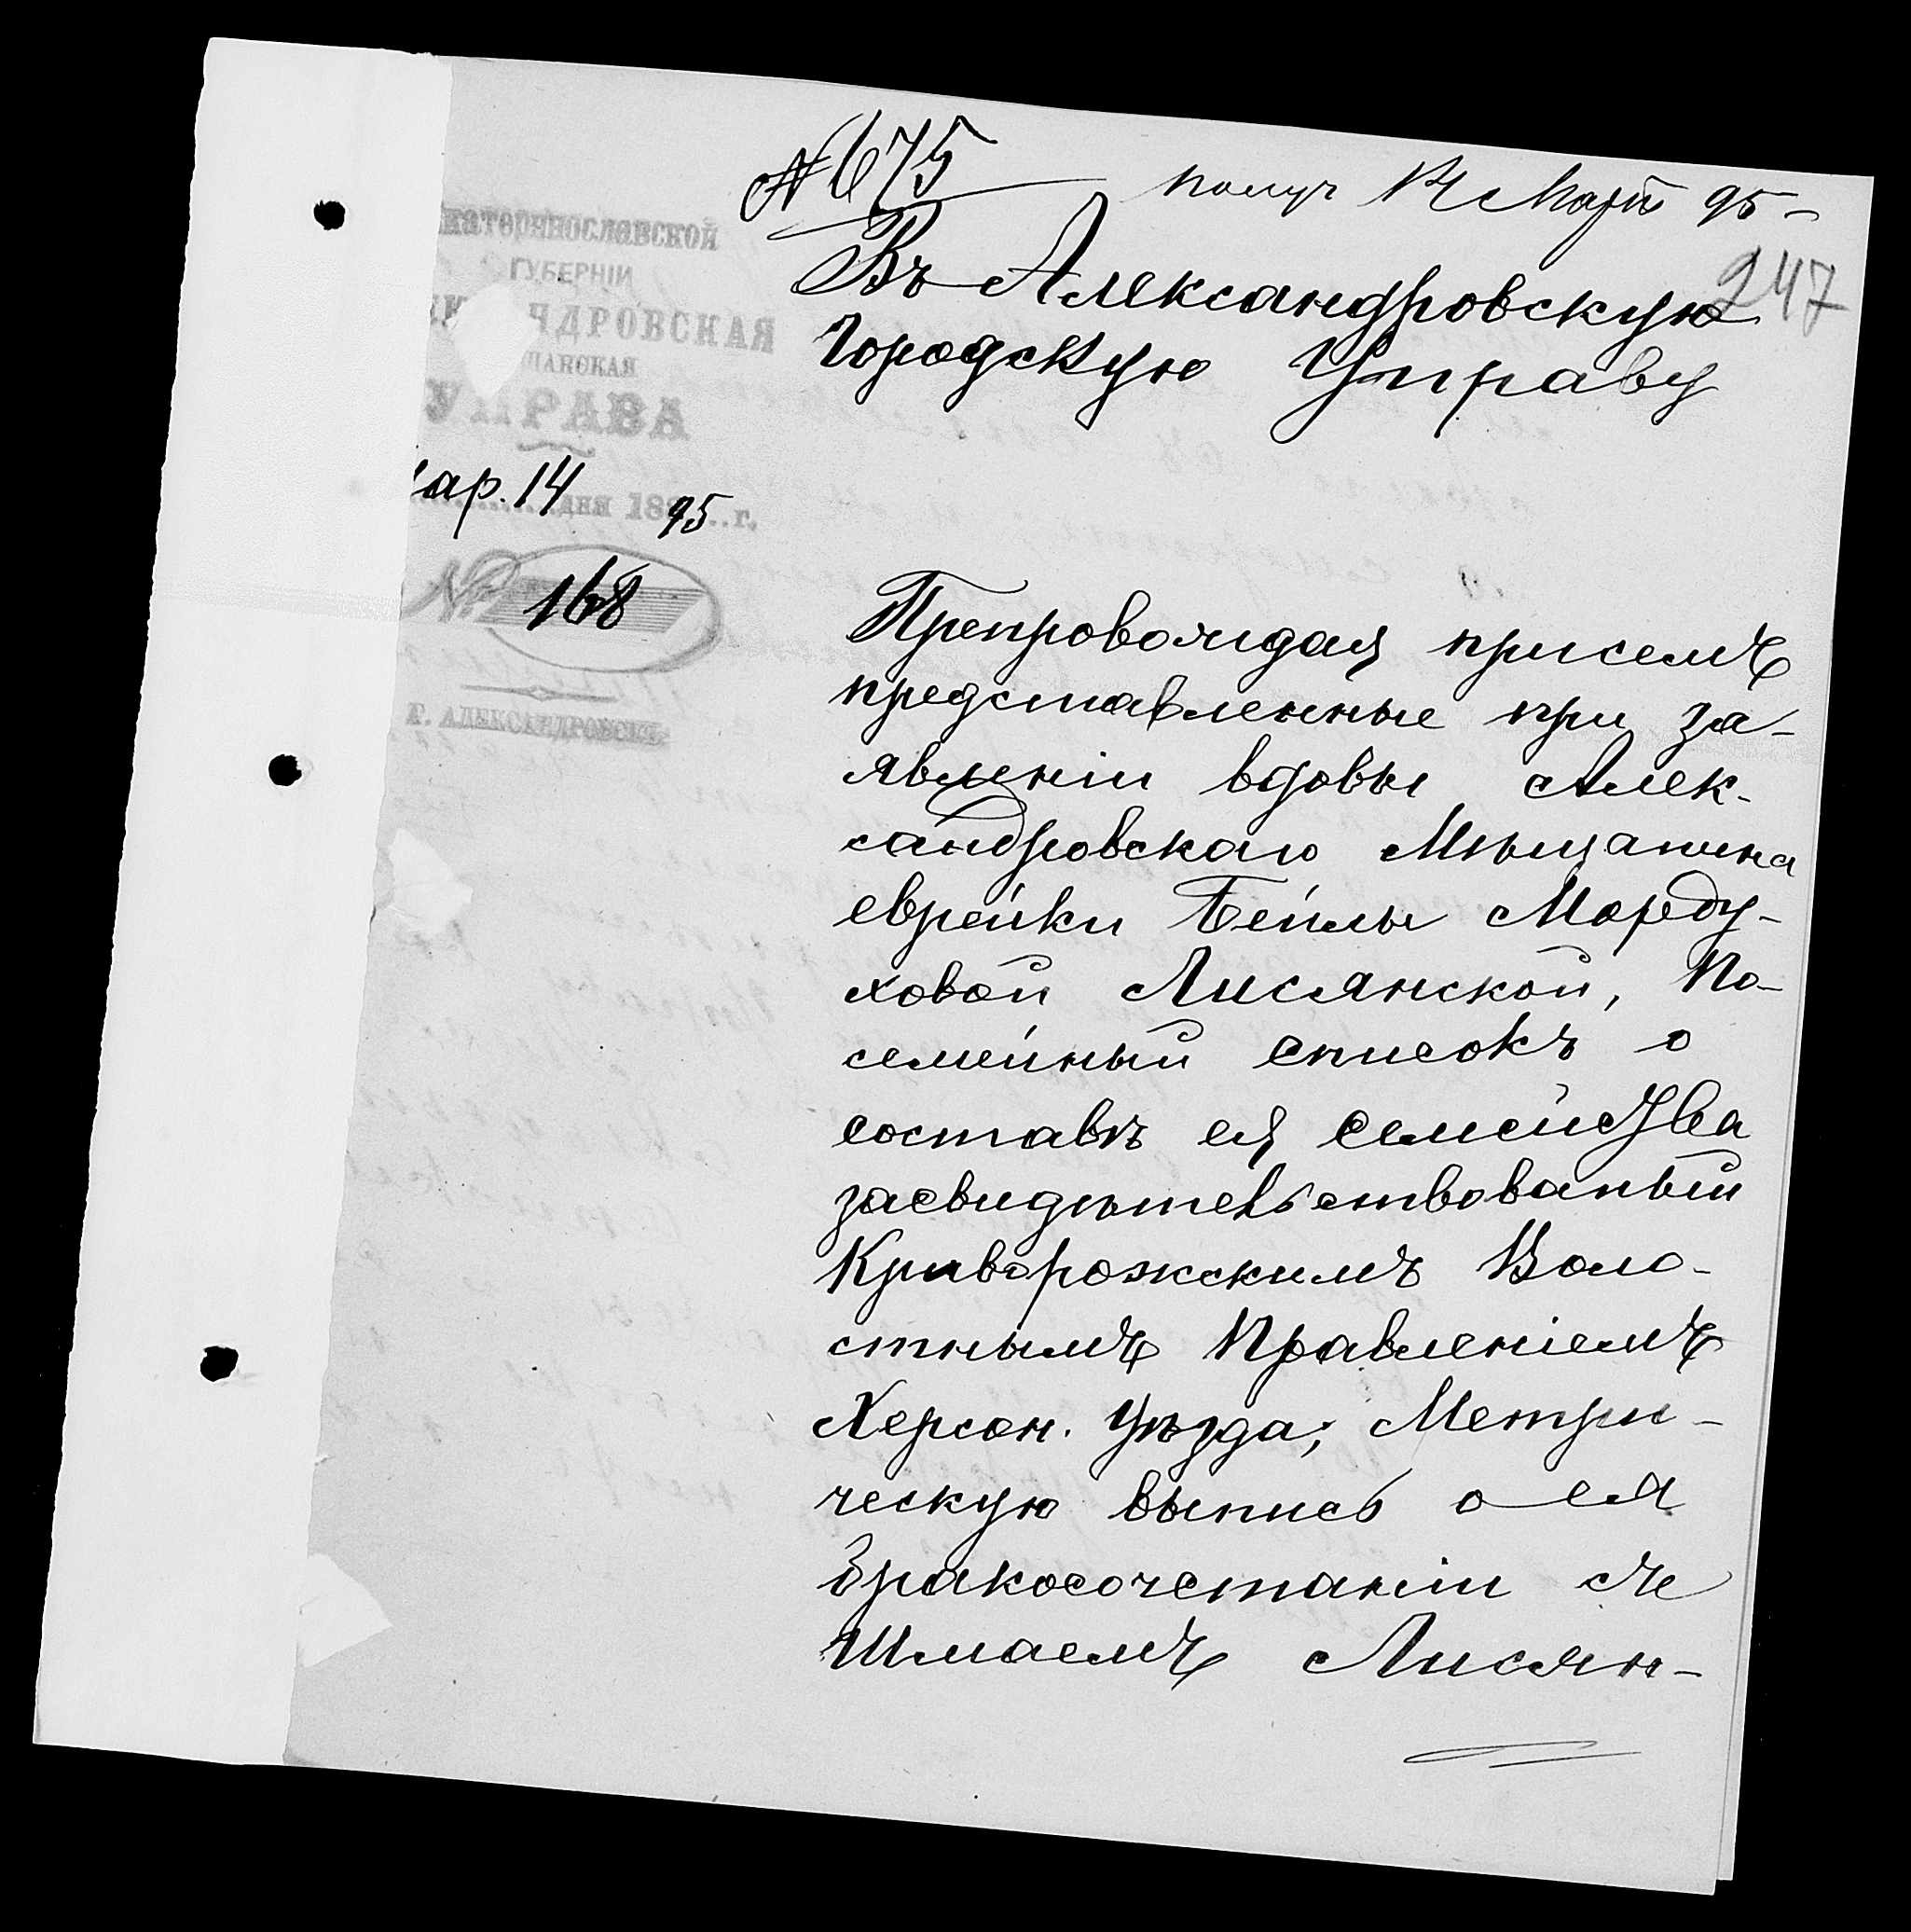 № 675 получ 14 Март 95 –
247
Въ Александровскую
Городскую Управу
катеринославской
ГУБЕРНІИ
НДРОВСКАЯ
ЩАНСКАЯ
УПРАВА
ар. 14
дня 188 95 г.
№ 168
Г. АЛЕКСАНДРОВСКЪ
Препровождая присемъ
представленные при за-
явленіи вдовы Алек-
сандровскаго Мѣщанина
еврейки Бейлы Морду-
ховой Лисянской, По-
семейный списокъ о
составѣ ея семейства
засвидѣтельствованый
Криворожскимъ Воло-
стнымъ Правленіемъ
Херсон. уѣзда; Метри-
ческую выпись о ея
бракосочетаніи съ
Шмаемъ Лисян-